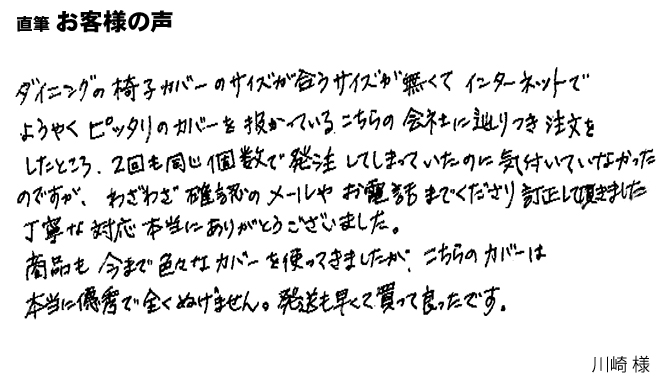 直筆 お客様の声
ダイニングの椅子カバーのサイズが合うサイズが無くて インターネットで
ようやく ピッタリのカバーを扱かっているこちらの会社に辿りつき注文を
したところ、2回も同じ個数で発注してしまっていたのに気付いていなかった
のですが、わざわざ確認のメールやお電話までくださり訂正して頂きました
丁寧な対応本当にありがとうございました。
商品も今まで色々なカバーを使ってきましたが、こちらのカバーは
本当に優秀で全くぬげません。発送も早くて買って良ったです。
川崎 様